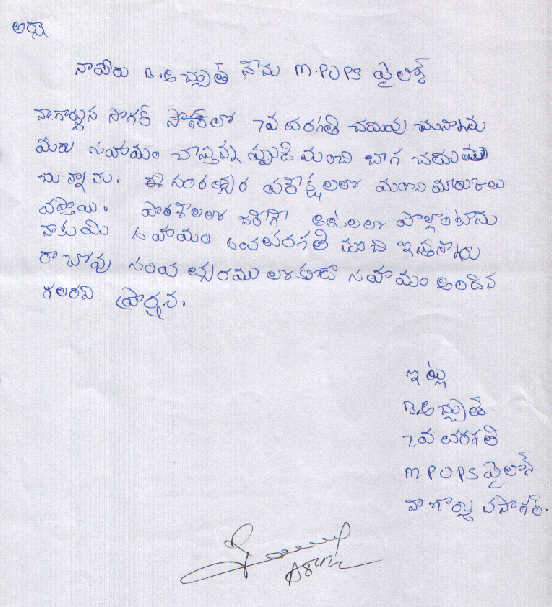 అర్యా
నాపేరు B.అచ్యుత్ నేను M.P.U.P.S పైలాన్
నాగార్జున సాగర్ పాఠశాలలో 7వ తరగతి చదువు చున్నాను
మీరు సహాయం చేస్తున్న నుండి మంచి బాగ చదువు
చున్నాను. ఈ సంవత్సర పరీక్షలలో మంచి మార్కులు
వచ్చాయి. పాఠశాలలో జరిగే ఆటలలో పాల్గొంటాను
నాకు మీ సహాయం తరగతి నుంచి ఇస్తున్నారు
రాబోవు సంవత్సరములో కూడా సహాయం అందించ
గలరని ప్రార్థన.
ఇట్లు
B.అచ్యుత్
7వ తరగతి
M P U P S పైలాన్
నాగార్జునసాగర్.